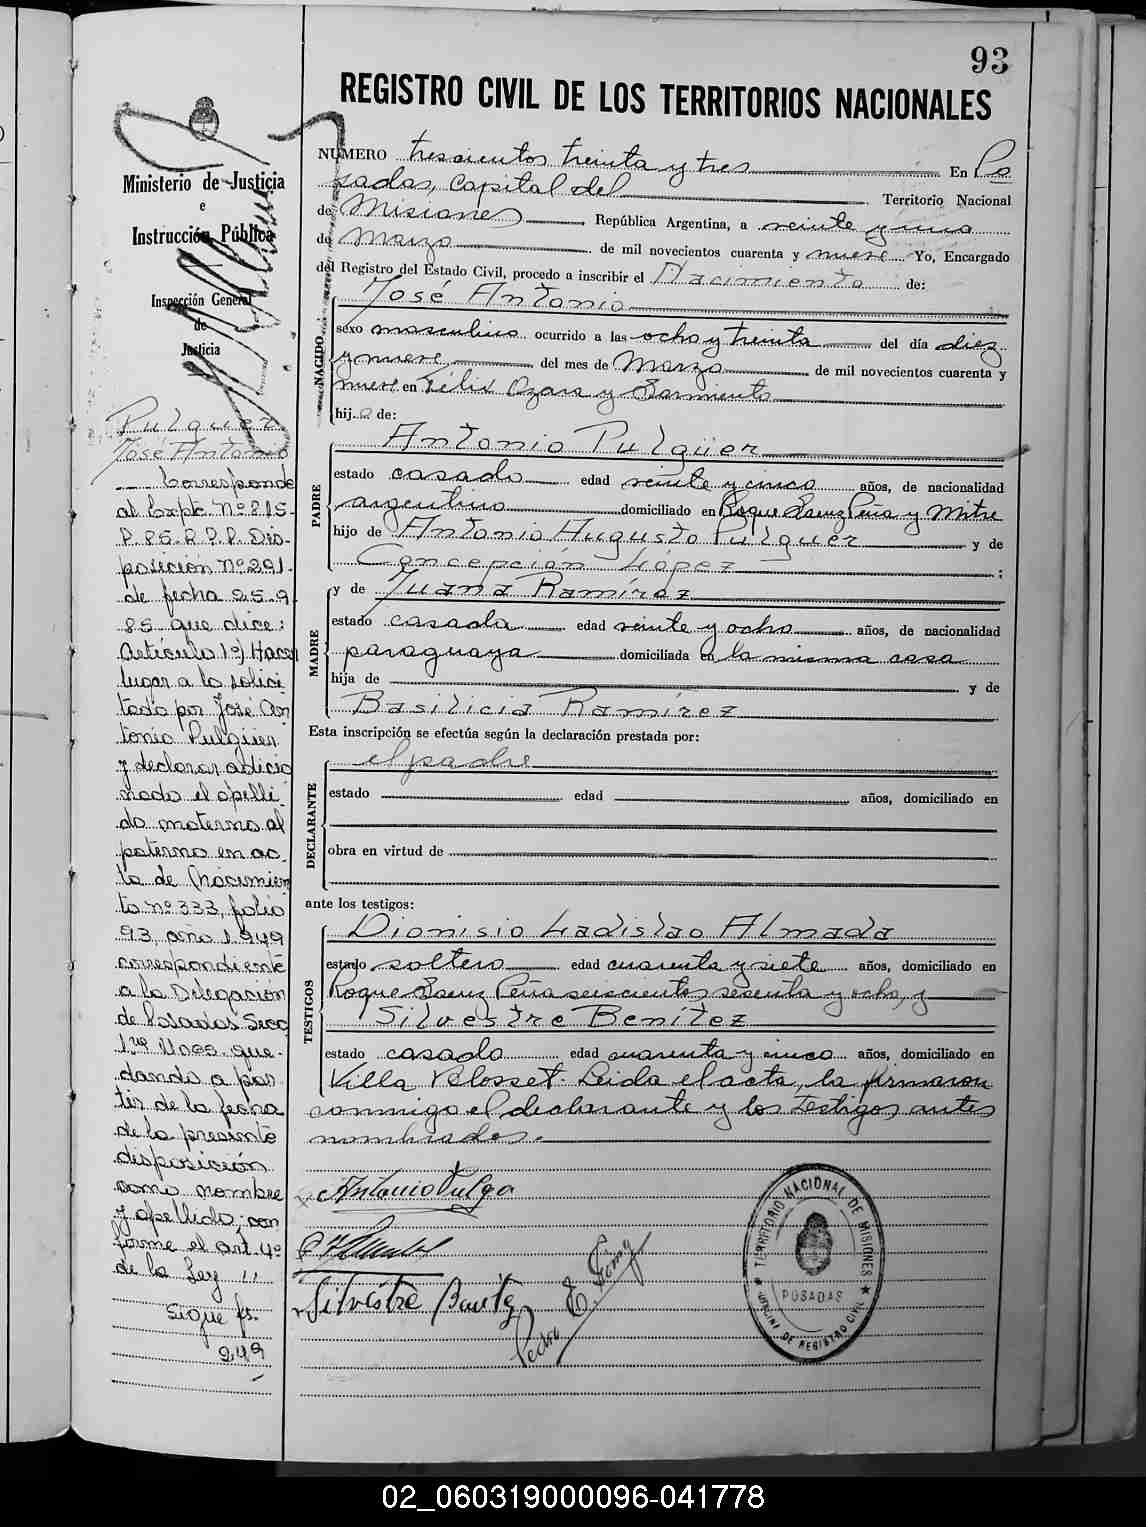 93
REGISTRO CIVIL DE LOS TERRITORIOS NACIONALES
Ministerio de Justicia
e
Instrucción Pública
Inspección General
de
Justicia
NÚMERO trescientos treinta y tres En Po
sadas, Capital del Territorio Nacional
de Misiones República Argentina, a veinte y uno
de Marzo de mil novecientos cuarenta y nueve Yo, Encargado
del Registro del Estado Civil, procedo a inscribir el Nacimiento de:
NACIDO
José Antonio
sexo masculino ocurrido a las ocho y treinta del día diez
y nueve del mes de Marzo de mil novecientos cuarenta y
nueve en Félix Azara y Sarmiento
hijo de:
PADRE
Antonio Pulgüer
estado casado edad veinte y cinco años, de nacionalidad
argentino domiciliado en Roque Saenz Peña y Mitre
hijo de Antonio Augusto Pulguer y de
Concepción López ;
MADRE
y de Juana Ramírez
estado casada edad veinte y ocho años, de nacionalidad
paraguaya domiciliada en la misma casa
hija de y de
Basilicia Ramírez
Esta inscripción se efectúa según la declaración prestada por:
DECLARANTE
el padre
estado edad años, domiciliado en
obra en virtud de
ante los testigos:
TESTIGOS
Dionisio Ladislao Almada
estado soltero edad cuarenta y siete años, domiciliado en
Roque Saenz Peña seiscientos sesenta y ocho, y
Silvestre Benítez
estado casado edad cuarenta y cinco años, domiciliado en
Villa Blosset. Leida el acta, la firmaron
conmigo el declarante y los testigos antes
nombrados.
Antonio Pulga
Silvestre Benitez
Pedro E.
TERRITORIO NACIONAL DE MISIONES
POSADAS
OFICINA DE REGISTRO CIVIL
Pulguer
José Antonio
Corresponde
al Expte. Nº 815-
P. 85-R.P.P. Dis-
posición Nº 291
de fecha 25-9
85 que dice:
Artículo 1º) Hacer
lugar a lo solici
tado por José An
tonio Pulgüer
y declarar adicio
nado el apelli
do materno al
paterno en ac
ta de Nacimien
to nº 333, folio
93, año 1949
correspondiente
a la Delegación
de Posadas Secc
1ra que-
dando a par
tir de la fecha
de la presente
disposición
como nombre
y apellido; con
forme el art. 4º
de la Ley 11
Sigue fs.
249
02_060319000096-041778